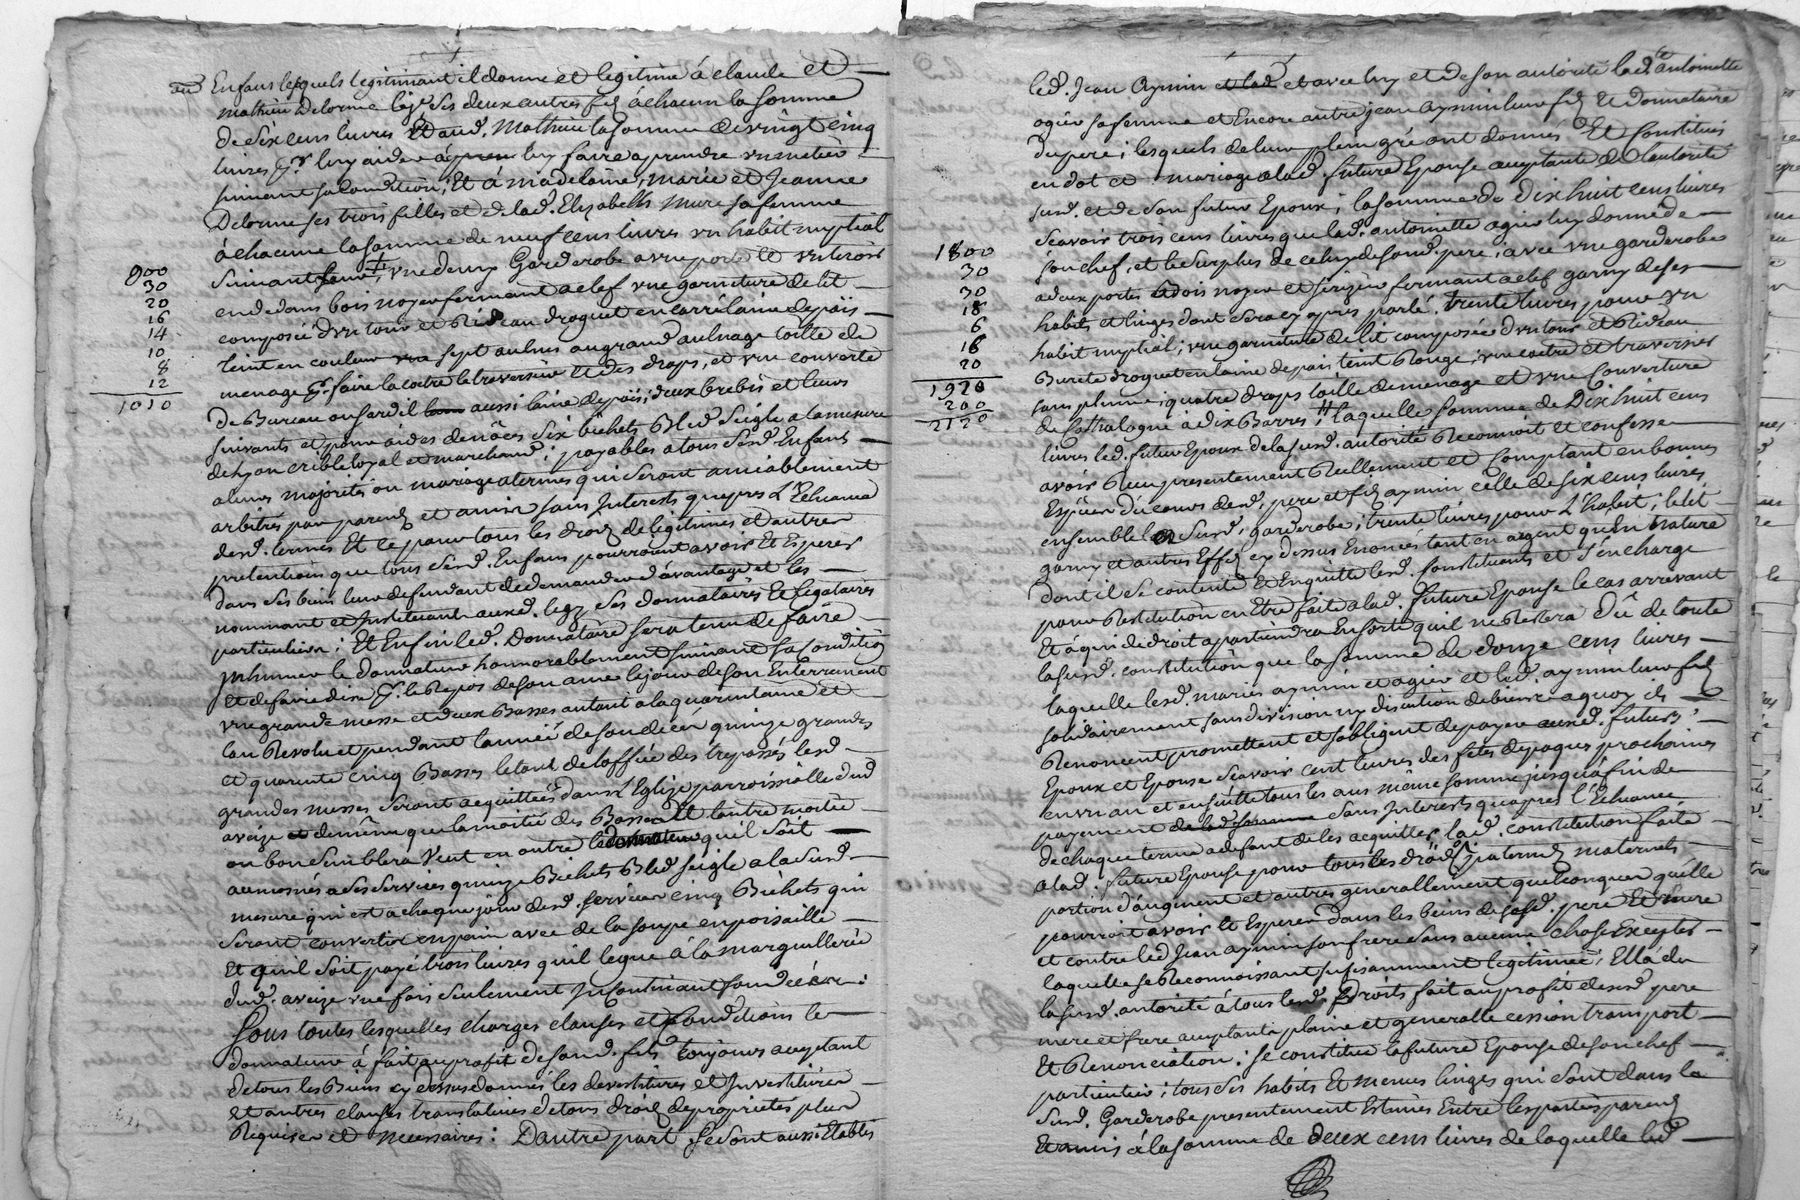 Enfans lesquels legitimant il donne et legitime á claude et
mathieu Delorme ses deux autres fils á chacun la somme
de six cens livres Et aud. Mathieu la somme de vingt cinq
livres pr luy aider á luy faire aprendre un metier
suivant sa condition; Et á madelaine, Marie et Jeanne
Delorme ses trois filles et d. lad. Elizabeth Mure sa femme
á chacune la somme de neuf cens livres un habit nuptial
900
suivant une Garderobe a une porte et un tiroir
30
en dedans bois noyer fermant a clef une garniture de lit
20
composée d'un tour et Rideau droguet en laine de païs
16
teint en couleur sept aulnes au grand aulnage toille de
14
menage pr. faire la coitre le traversier et des draps, et une couverte
10
8
de Bureau aussi laine de païs; deux brebis et leurs
12
1010
suivants et pour aides de nôces six bichets Bled seigle a la mesure
de Lyon crible loyal et marchand; payables a tous sesd. Enfans
a leurs majorités ou mariage a termes qui seront amiablement
arbitrés par parens et amis sans Interests qu'apres l'Echeance
desd. termes Et ce pour tous les droits de legitimes et autres
pretentions que tous sesd. Enfans pourroient avoir Et Esperer
dans ses biens leur defendant de demander d'avantage et les
nommant et Instituant auxd. legs ses donnataires Et legataires
particuliers; Et Enfin led. Donnataire sera tenu de faire
Inhumer le donnateur honnorablement suivant sa condition
et de faire dire pr. le Repos de son ame le jour de son Enterrement
une grande messe et deux Basses autant a la quarantaine et
l'an Revolu et pendant l'année de son decez quinze grandes
et quarante cinq Basses le tout de l'office des trepassés lesd.
grandes messes seront acquittées dans l'Eglize parroissialle dud
aveize de même que la moitié des Basses Et l'autre moitié
ou bon semblera Veut en outre qu'il soit
aumosnés a ses services quinze Bichets Bled seigle a la susd.
mesure qui est a chaque jour desd. services cinq Bichets qui
seront convertis en pain avec de la soupe en poisaille
Et qu'il soit payé trois livres qu'il legue á la marguillerie
dud. aveize une fois seulement Incontinant son decés:
Sous toutes lesquelles charges clauses et conditions le
donnateur á fait au profit de sond. fils toujours acceptant
de tous les Biens cy dessus donnés les devestitures et Investitures
et autres clauses translatives de tous droits de proprietés plus
Requises et necessaires: D'autre part se sont aussi Etablis
led. Jean Aymin et avec luy et de son autorité lad. antoinette
agier sa femme et Encore autre jean aymin leur fils Et donnataire
du pere; lesquels de leur plein gré ont donnés Et constitués
en dot et mariage a lad. future Epouse acceptante de l'autorité
susd. et de son futur Epoux; la somme de Dix huit cens livres
sçavoir trois cens livres que lad. antoinette agier luy donne de
1800
son chef, et le surplus de celuy de sond. pere; avec une garderobe
30
a deux portes bois noyer et serizier fermant a clef garny de ses
30
habits et linges dont sera cy apres parlé. trente livres pour un
18
6
habit nuptial; une garniture de lit composée d'un tour et Rideau
16
20
Burete droguet en laine de païs teint Rouge; une coitre et traversier
1920
sans plume; quatre draps toille de menage et une couverture
200
2120
de Cathalogne á dix Barres; laquelle somme de Dix huit cens
livres led. futur Epoux de la susd. autorité Reconnoit Et confesse
avoir Reçu presentement Reellement et comptant en bonnes
Especes du cours desd. pere et fils aymin celle de six cens livres
ensemble la susd. garderobe; trente livres pour l'habit; le lit
garny et autres Effets cy dessus Enoncés tant en argent qu'en nature
dont il se contente Et Enquitte lesd. constituants et s'en charge
pour Restitution en Etre faite a lad. future Epouse le cas arrivant
Et á qui de droit apartiendra En sorte qu'il ne Restera Dû de toute
la susd. constitution que la somme de douze cens livres
laquelle lesd. mariés aymin et agier et led. aymin leur fils
solidairement sans division ny discution de biens a quoy ils
Renoncent promettent et s'obligent de payer auxd. futurs
Epoux et Epouse sçavoir cent livres des fetes de paques prochaines
en un an et ensuitte tous les ans même somme jusqu'á fin de
payement sans Interests qu'apres l'Echeance
de chaque terme a defaut de les acquitter, lad. constitution faite
a lad. future Epouse pour tous les droits paternels maternels
portion d'augment et autres generallement quelconques qu'elle
pourroit avoir Et Esperer dans les biens de sesd. pere Et mere
et contre led. Jean aymin son frere sans aucune chose Excepter
laquelle se Reconnoissant suffisamment legitimée; Elle á de
la susd. autorité á tous lesd. Droits fait au profit desesd pere
mere et frere acceptants plaine et generalle cession transport
Et Renonciation: se constitue la future Epouse de son chef
particulier; tous ses habits Et menus linges qui sont dans la
susd. Garderobe presentement Estimés Entre les parties parens
Et amis á la somme de deux cens livres de laquelle led.